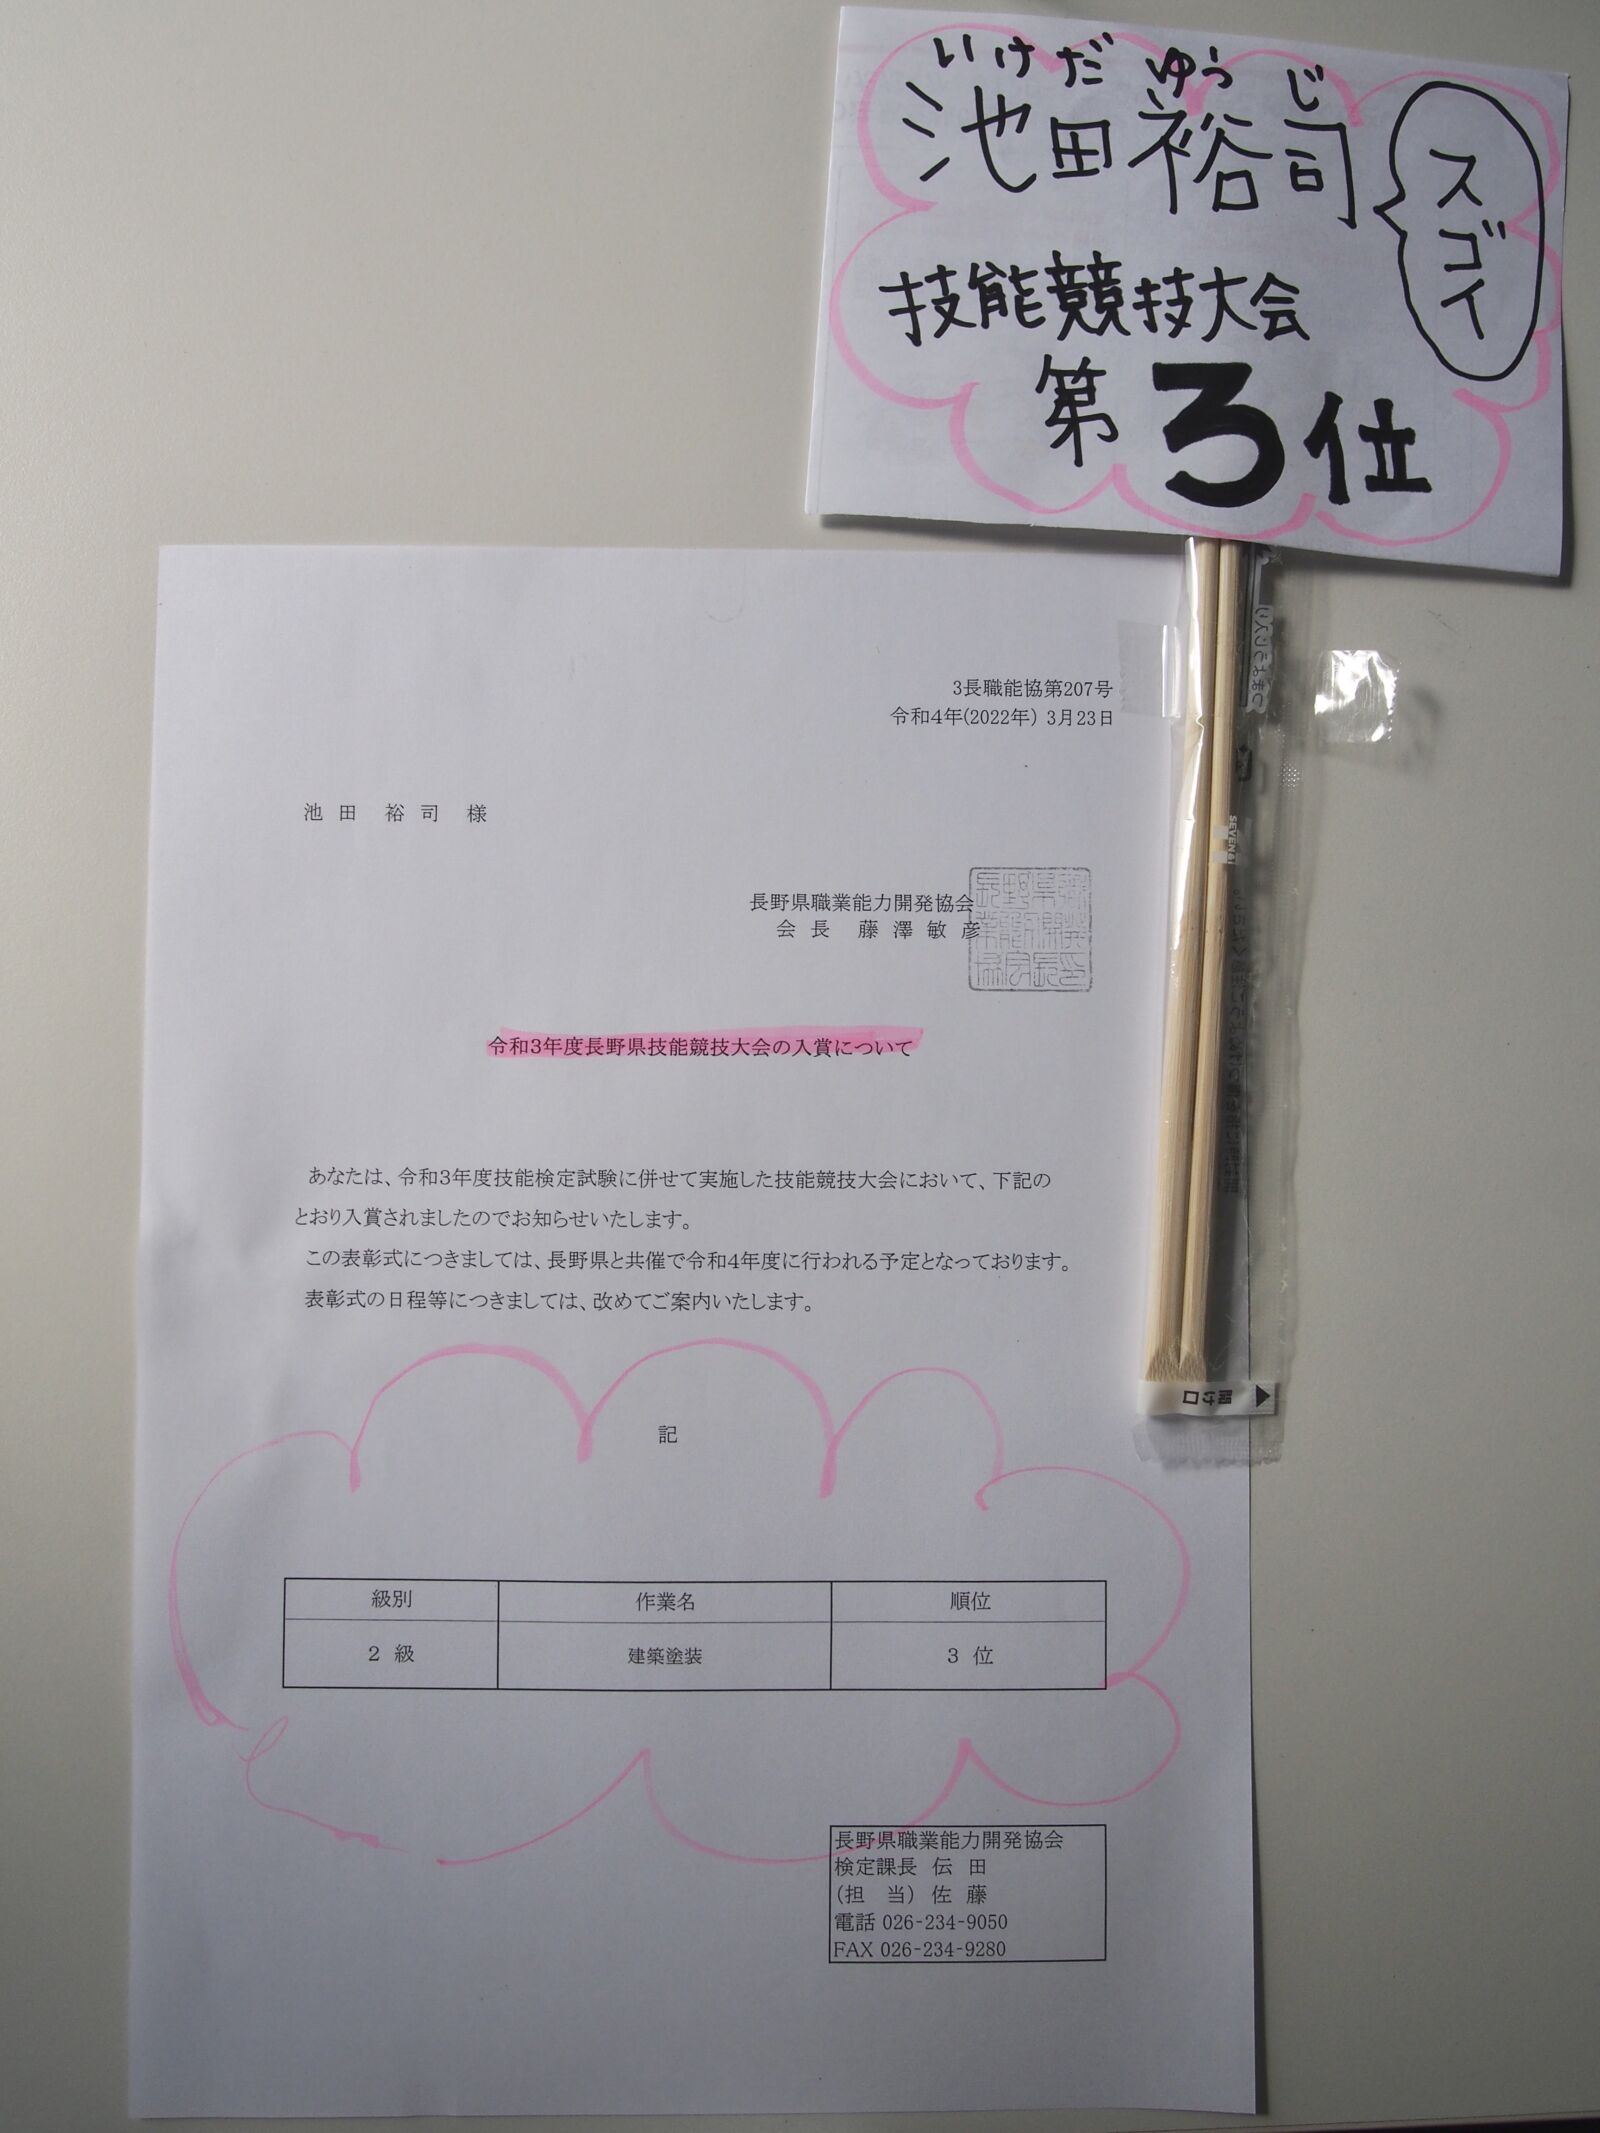 いけだ ゆうじ
池田裕司
スゴイ
技能競技大会
第3位
3長職能協第207号
令和4年(2022年) 3月23日
池 田 裕 司 様
長野県職業能力開発協会
会 長 藤 澤 敏 彦
令和3年度長野県技能競技大会の入賞について
あなたは、令和3年度技能検定試験に併せて実施した技能競技大会において、下記の
とおり入賞されましたのでお知らせいたします。
この表彰式につきましては、長野県と共催で令和4年度に行われる予定となっております。
表彰式の日程等につきましては、改めてご案内いたします。
記
級別 作業名 順位
2 級 建築塗装 3 位
長野県職業能力開発協会
検定課長 伝 田
(担 当) 佐 藤
電話 026-234-9050
FAX 026-234-9280
開け口